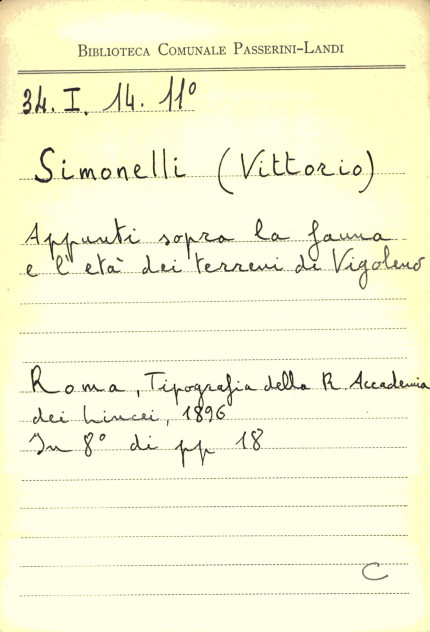 BIBLIOTECA COMUNALE PASSERINI-LANDI
34. I. 14. 11°
Simonelli (Vittorio)
Appunti sopra la fauna
e l'età dei terreni di Vigoleno
Roma, Tipografia della R. Accademia
dei Lincei, 1896
In 8° di pp 18
C